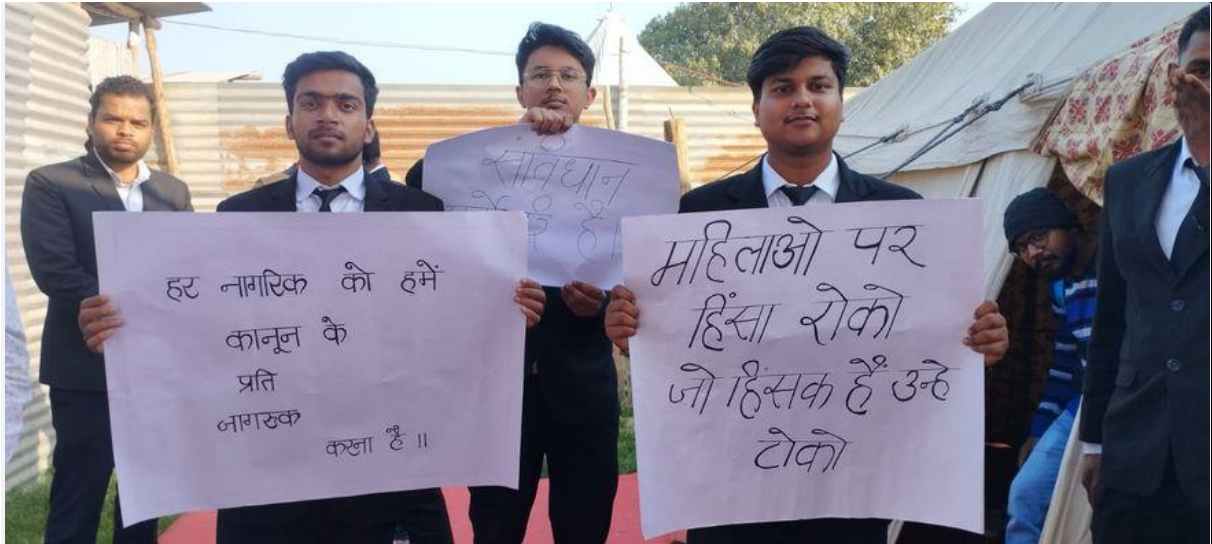 हर नागरिक को हमें
कानून के
प्रति
जागरुक
करना है ॥
संविधान
है।
महिलाओ पर
हिंसा रोको
जो हिंसक हैं उन्हे
टोको